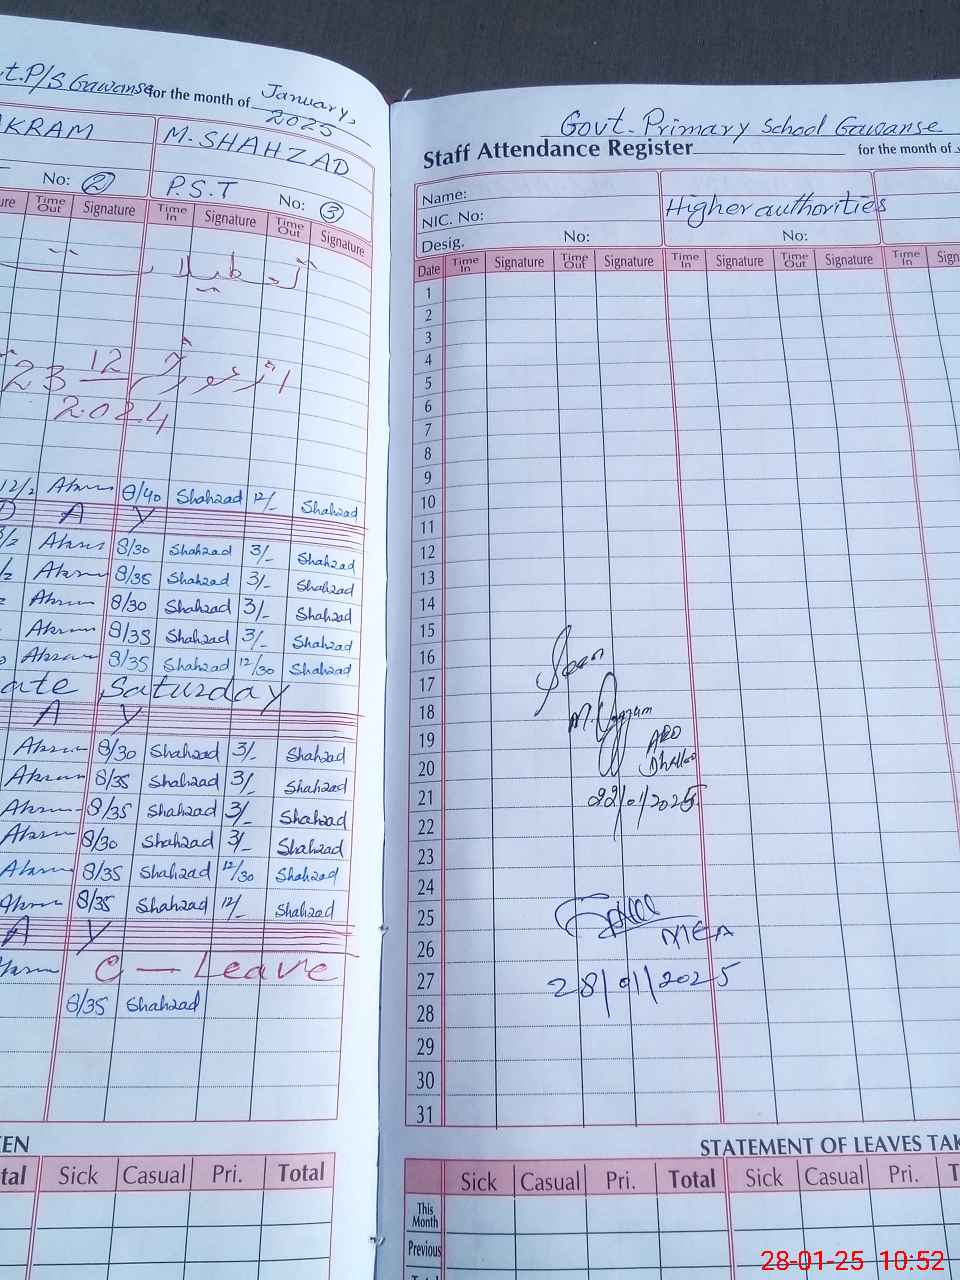 t. P/S Gawanse for the month of January, 2025
AKRAM M. SHAHZAD
No: 2 P.S.T No: 3
ure Time Out Signature Time In Signature Time Out Signature
تعطیلات
23 12 2024
12/2 Akram 8/40 Shahzad 12/- Shahzad
D A Y
3/2 Akram 8/30 Shahzad 3/- Shahzad
/2 Akram 8/35 Shahzad 3/- Shahzad
Akram 8/30 Shahzad 3/- Shahzad
Akram 8/35 Shahzad 3/- Shahzad
Akram 8/35 Shahzad 12/30 Shahzad
ate Saturday
A Y
Akram 8/30 Shahzad 3/- Shahzad
Akram 8/35 Shahzad 3/- Shahzad
Akram 8/35 Shahzad 3/- Shahzad
Akram 8/30 Shahzad 3/- Shahzad
Akram 8/35 Shahzad 12/30 Shahzad
Akram 8/35 Shahzad 12/- Shahzad
A Y
Akram C — Leave
8/35 Shahzad
EN
tal Sick Casual Pri. Total
Govt. Primary School Gawanse
Staff Attendance Register for the month of
Name:
NIC. No: Higher authorities
Desig. No: No:
Date Time In Signature Time Out Signature Time In Signature Time Out Signature Time In Sign
1
2
3
4
5
6
7
8
9
10
11
12
13
14
15
16 Seen
17
18 M.
19
20
21 22/01/2025
22
23
24
25
26 MEA
27 28/01/2025
28
29
30
31
STATEMENT OF LEAVES TAK
Sick Casual Pri. Total Sick Casual Pri. T
This Month
Previous
28-01-25 10:52